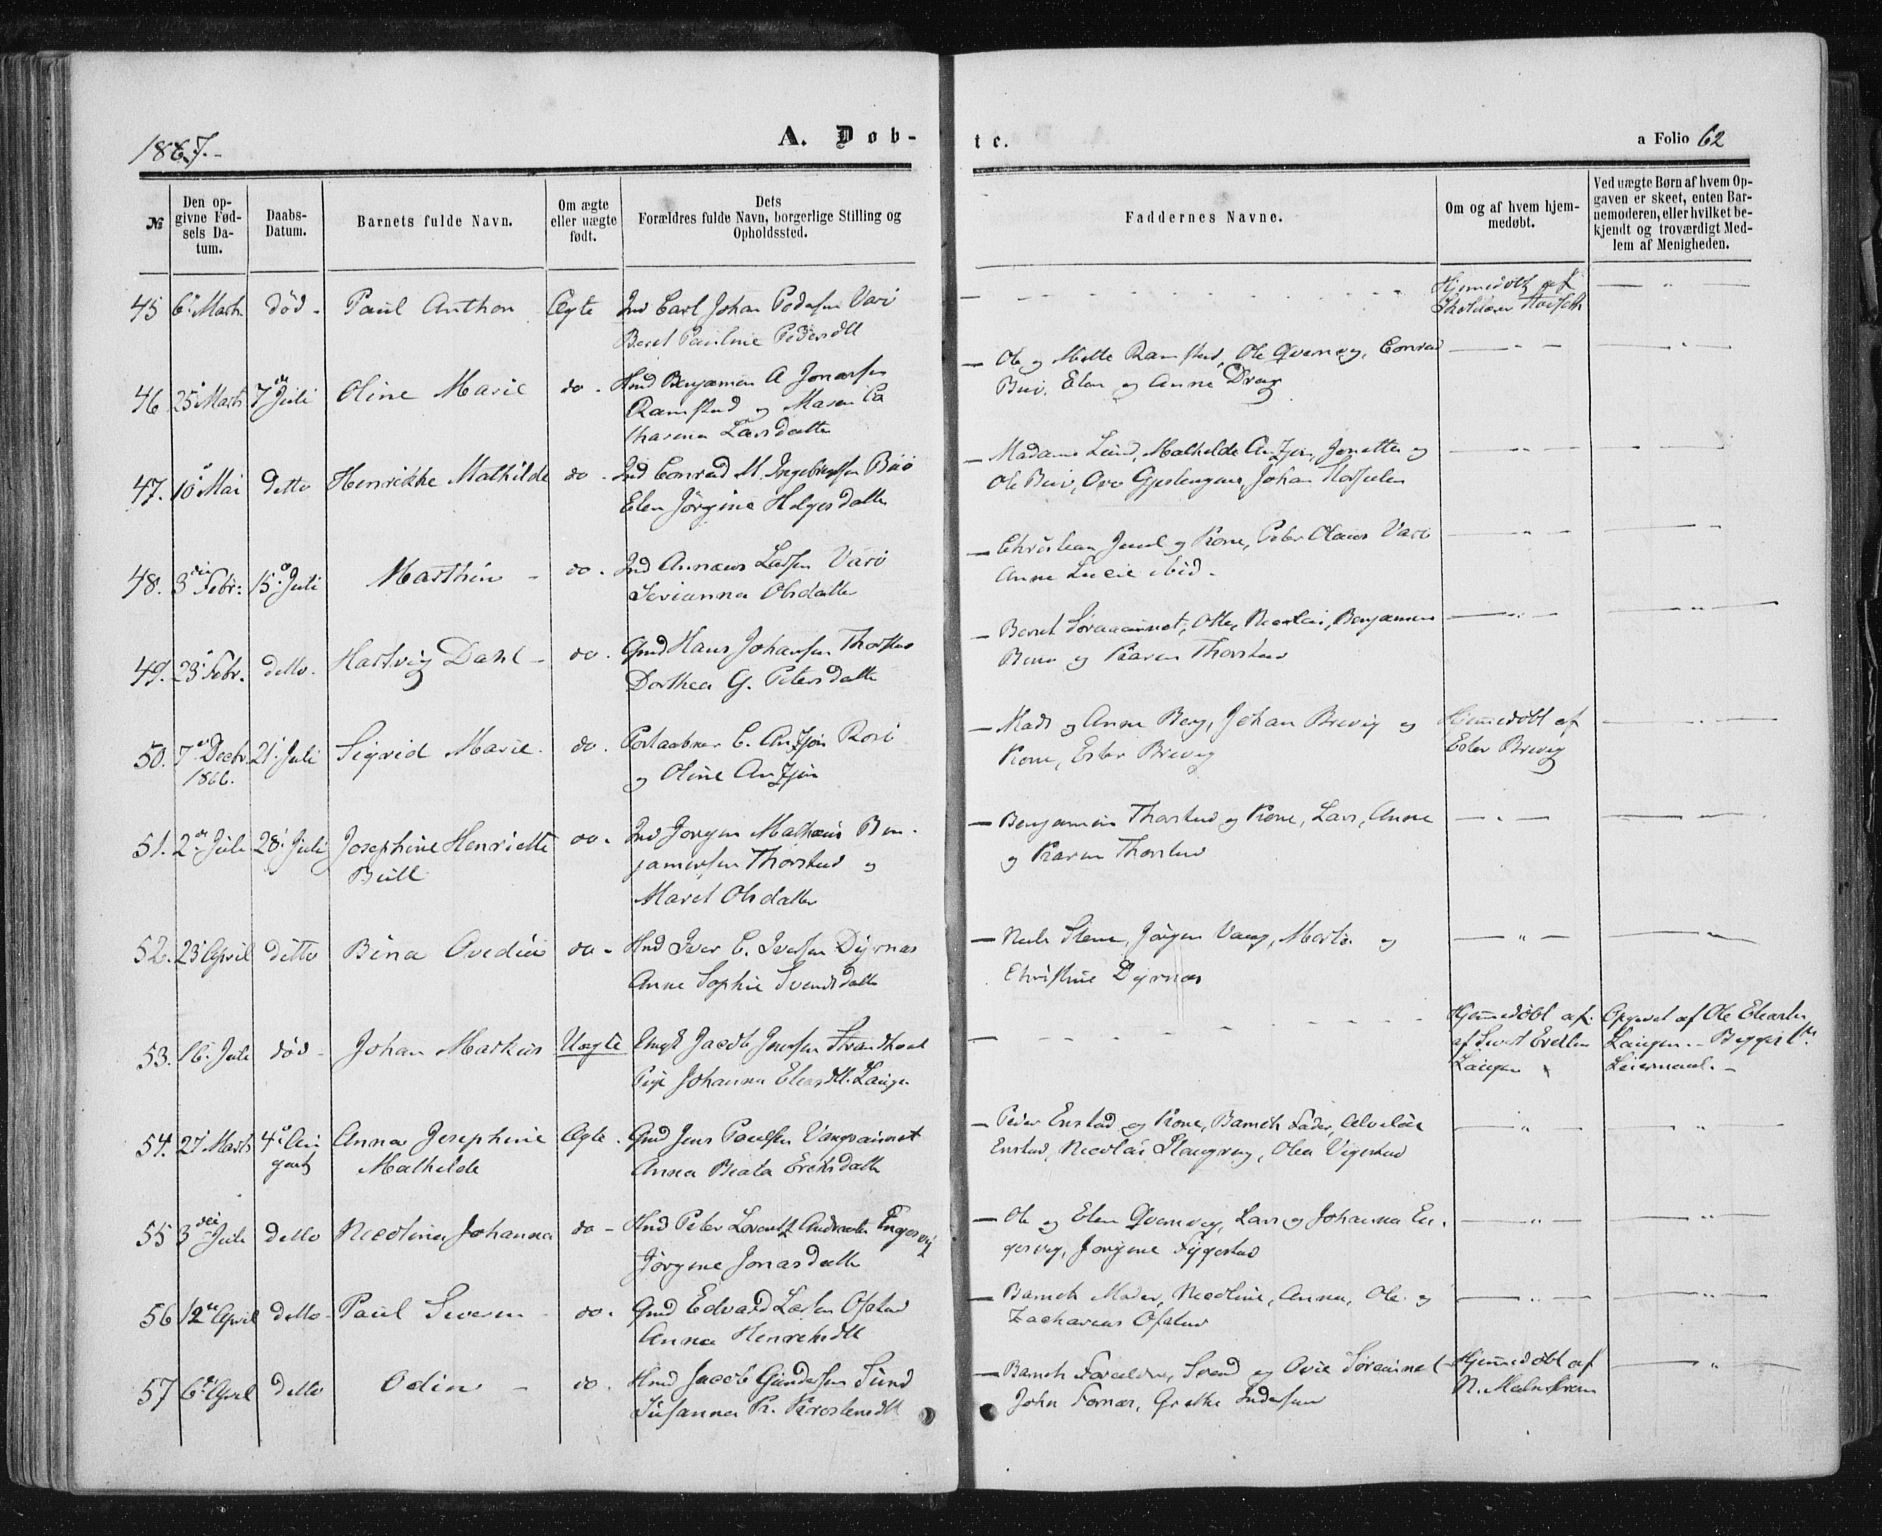 1867.-
A. Døb-
te.
a Folio 62
№
Den opgivne Fødsels Datum.
Daabs-Datum.
Barnets fulde Navn.
Om ægte eller uægte født.
Dets Forældres fulde Navn, borgerlige Stilling og Opholdssted.
Faddernes Navne.
Om og af hvem hjemmedøbt.
Ved uægte Børn af hvem Opgaven er skeet, enten Barnemoderen, eller hvilket bekjendt og troværdigt Medlem af Menigheden.
45 6 Marts død - Paul Anthon Ægte Ind Carl Johan Pedersen Værø
Beret Pauline Pedersdtt
Hjemmedøbt af
46. 25 Marts 7de Juli Oline Marie do - Hmd Benjamin A Jonassen
Ramstad og Maren Ca
tharina Larsdatter
Ole og Mette Ramstad, Ole Qvernvig, Conrad
Buø, Elen og Anne Drag
47. 10 Mai ditto Henrikke Mathilde do - Ind Conrad M. Ingebrigtsen Buø
Elen Jörgine Helgesdatter
Madame Lund, Mathilde Anzjøn, Jonetta og
Ole Buø, Ove Gjeslingene, Johan
48. 3die Febr. 15 Juli Marthin - do - Ind Annæus Larsen Værø
Serianna Olsdatter
Christian Juul og Kone, Peter Olaus Værø
Anne Lucie ibid.
49. 23 Febr. ditto. Hartvig Dahl - do. Gmd Hans Johansen Thorstad
Dorthea G. Petersdatter
Beret Søraaunet, Otter, Nicolai, Benjamin
Buø og Karen Thorstad
50. 7de Decbr. 1866. 21 Juli Sigrid Marie - do. Postaabner C. Anzjøn Rosø
og Oline Anzjøn
Mads og Anne Berg, Johan Brevig og
Kone, Ester Brevig
Hjemmedøbt af
Ester Brevig
51. 2den Juli 28 Juli Josephine Henriette
Bull
do. Ind Jørgen Mathæus Ben-
jaminsen Thorstad og
Maret Olsdatter
Benjamin Thorstad og Kone, Lars, Anne
og Karen Thorstad
52. 23 April ditto Bina Ovedia do - Hmd Iver C. Iversen Dyrnæs
Anne Sophie Svendsdatter
Neels Steene, Jørgen Vaag, Marta og
Christine Dyrnæs
53. 16. Juli død - Johan Markus Uægte Ungk Jacob Jensen Strandhval
Pige Johanna Eliasdtt. Lauge
Hjemmedøbt af
Opgivet af Ole
Leiermaal. -
54. 21 Marts 4 August Anna Josephine
Mathilde
Ægte. Gmd Jens Paulsen Vangvaunet
Anna Beata Eriksdatter
Peder Enstad og Kone, Barnets Fader,
Enstad, Nicolai, Olea Vigestad
55 3die Juli ditto Nicolina Johanna do - Hmd Peter Lorentz Andreasen Engesvig
Jørgine Jonasdatter
Ole og Elen Qvernvig, Lars og Johanna En-
gesvig, Jørgine Fyggestad
56 12te April ditto Paul Severin - do. Gmd Edvard Larsen Ofstad
Anna Henriksdtt
Barnets Moder, Nicoline, Anna, Ole og
Zacharias Ofstad
57 6 April ditto Odin - do. Hmd Jacob Gundersen Sund
Susanna K. Kirstensdtt
Barnets Forældre, Svend og Ovie Søraunet
John Fornæs, Grethe Indersen
Hjemmedøbt af
N. Malmstrøm